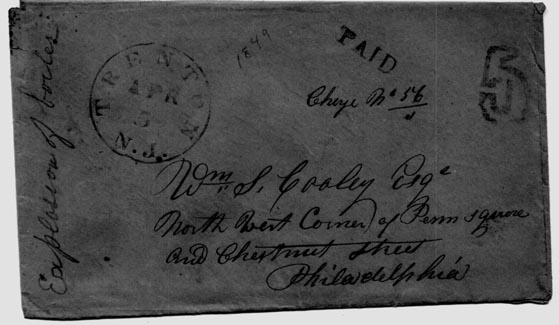 Explosion of boiler
TRENTON
N.J.
APR
5
1849
PAID
5
Chge No 56
Wm. S. Cooley Esqe
North West Corner of Penn square
and Chestnut street
Philadelphia